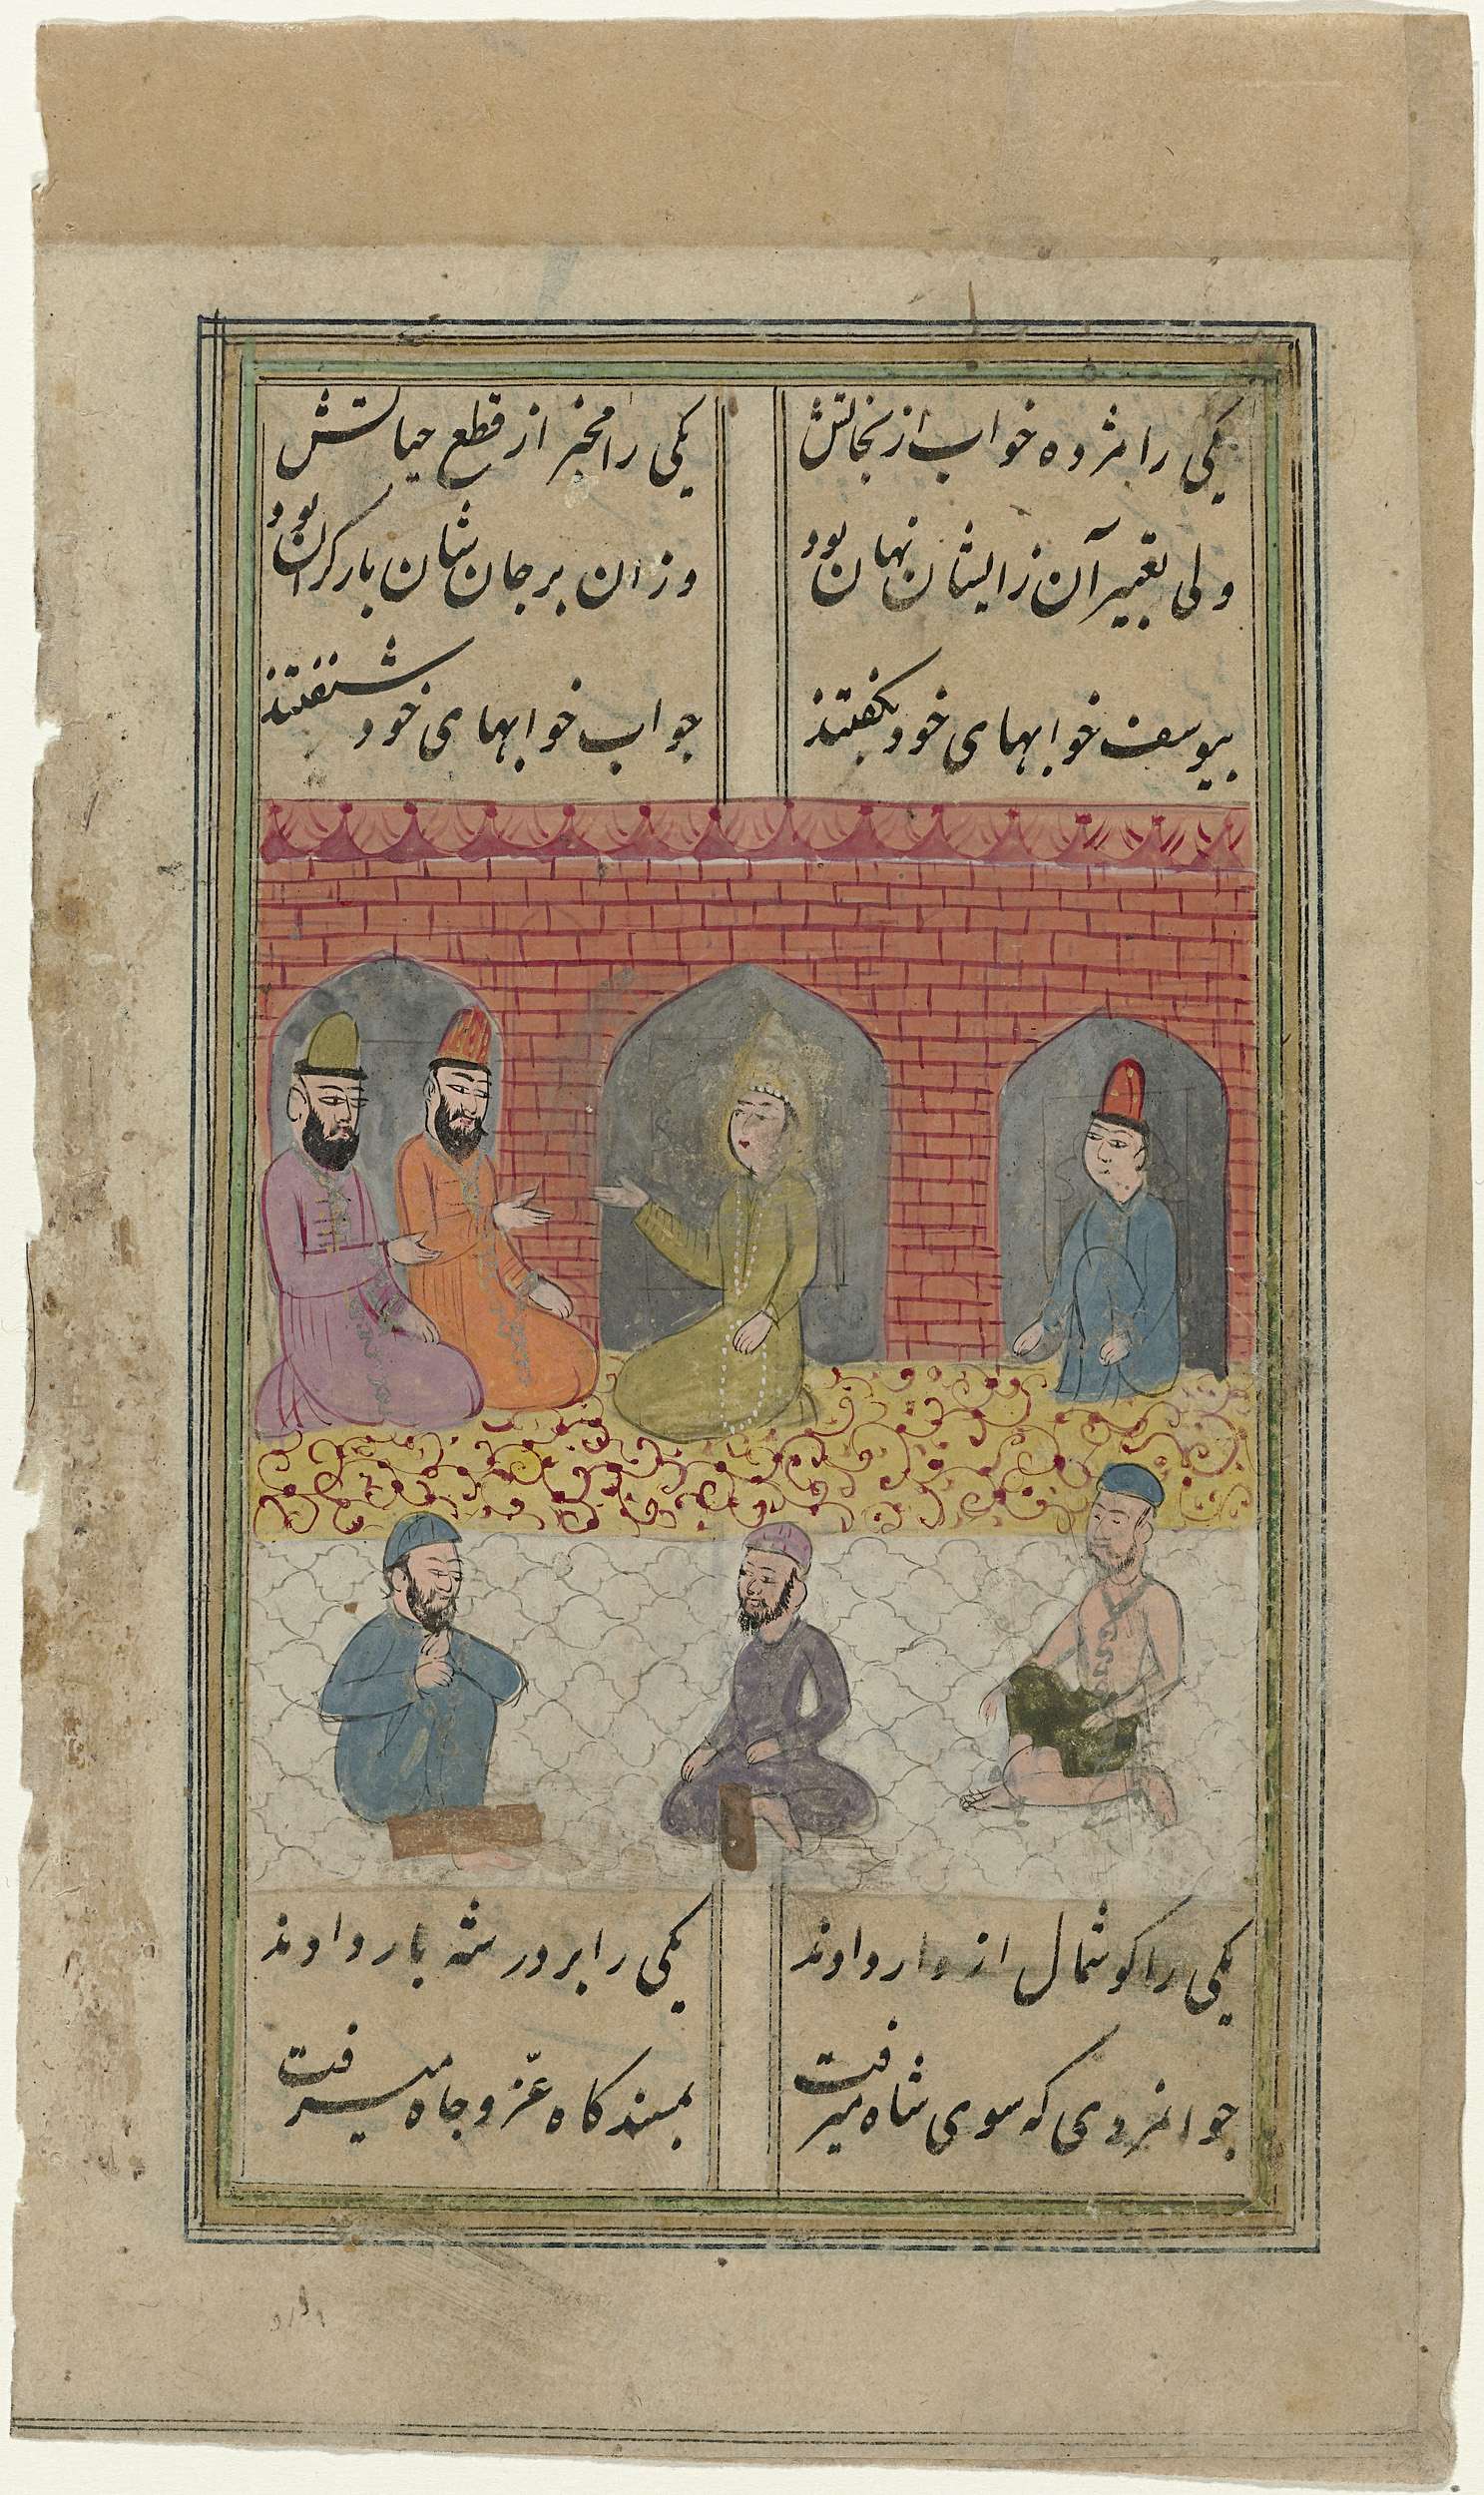 یکی را مژده خواب از نجاتش
یکی را مخبر از قطع حیاتش
ولی تعبیر آن زایشان نهان بود
وزان بر جانشان بار کران بود
بیوسف خوابهای خود بکفتند
جواب خوابهای خود شنفتند
یکی را کوشمال از دار دادند
یکی را بر در شه بار دادند
جوانمردی که سوی شاه میرفت
بمسندکاه عزّ و جاه میرفت